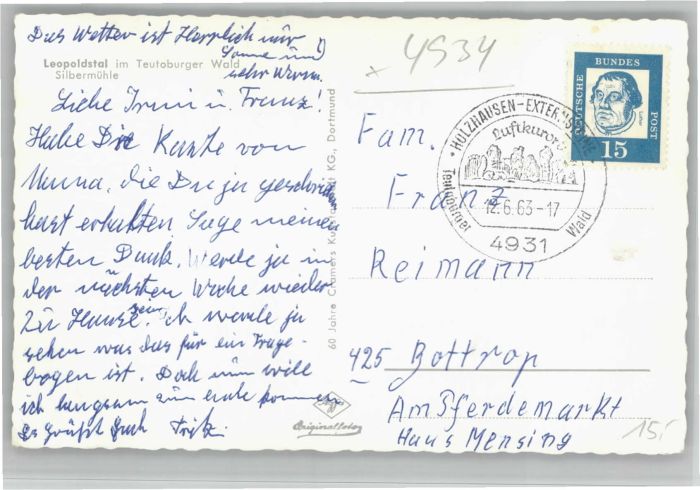 Das Wetter ist Herrlich nur
Sonne und
sehr Warm.
Leopoldstal im Teutoburger Wald
Silbermühle
Liebe Irmi u. Franz!
Habe Die Karte von
Munna, die Du ja geschrieben
hast erhalten. Sage meinen
besten Dank. Werde ja in
der nächsten Woche wieder
zu Hause sein. Ich werde ja
sehen was das für ein Frage-
bogen ist. Doch nun will
ich langsam zum ende kommen
Es grüßt Euch Fritz.
60 Jahre Cramers Kunstanstalt KG., Dortmund
Agfa
Originalfoto
4934
DEUTSCHE BUNDESPOST
15
HOLZHAUSEN-EXTERNSTEINE
Luftkurort
12.6.63-17
Teutoburger Wald
4931
Fam.
Franz
Reimann
425 Bottrop
Am Pferdemarkt
Haus Mensing
15,-